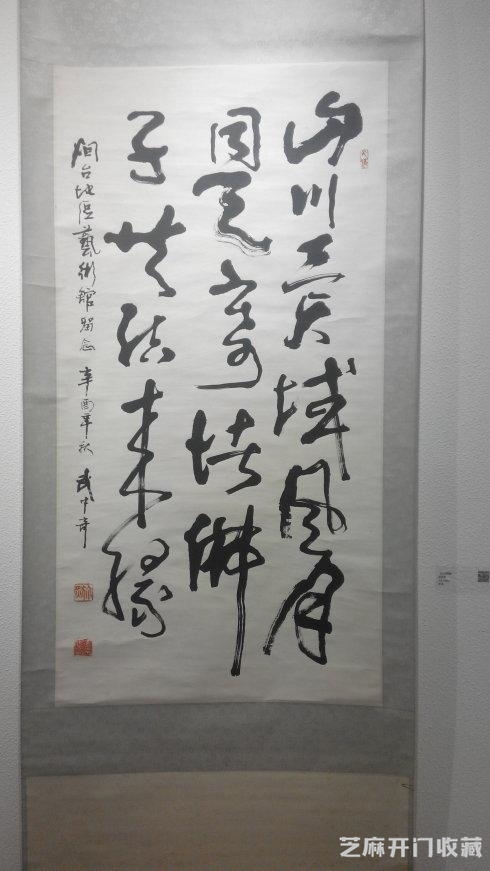 山川異域風月
同天寄諸佛
子共結來緣
烟台地區藝術館留念 辛酉年秋 武中奇
芝麻开门收藏